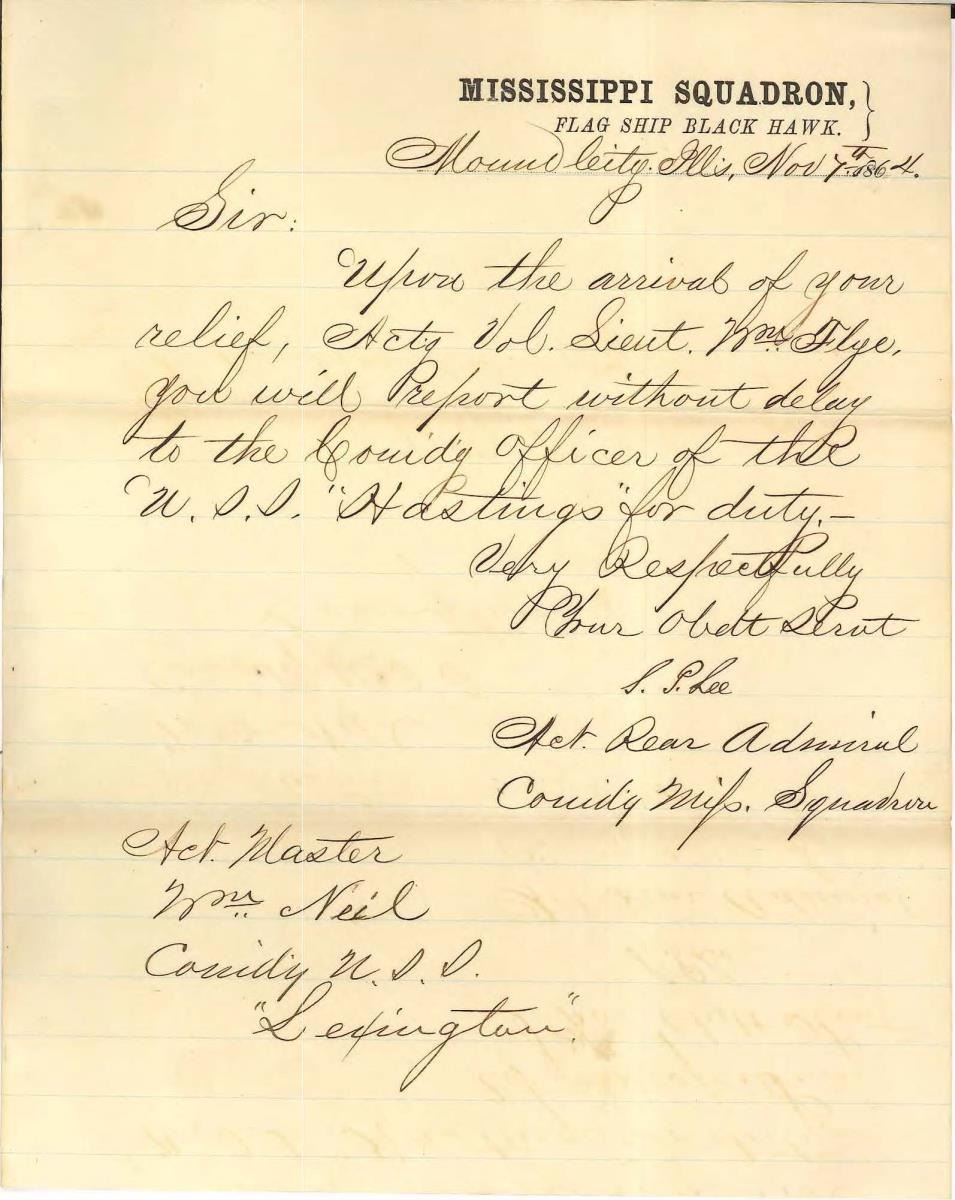 MISSISSIPPI SQUADRON,
FLAG SHIP BLACK HAWK.
Mound City. Ills, Nov 7th 1864.
Sir:
Upon the arrival of your
relief, Actg Vol. Lieut. Wm. Flye,
you will report without delay
to the Comdg Officer of the
U.S.S. "Hastings" for duty.—
Very Respectfully
Your Obdt Servt
S. P. Lee
Act. Rear Admiral
Comdg Miss. Squadron
Act. Master
Wm. Neil
Comdg U.S.S.
"Lexington".